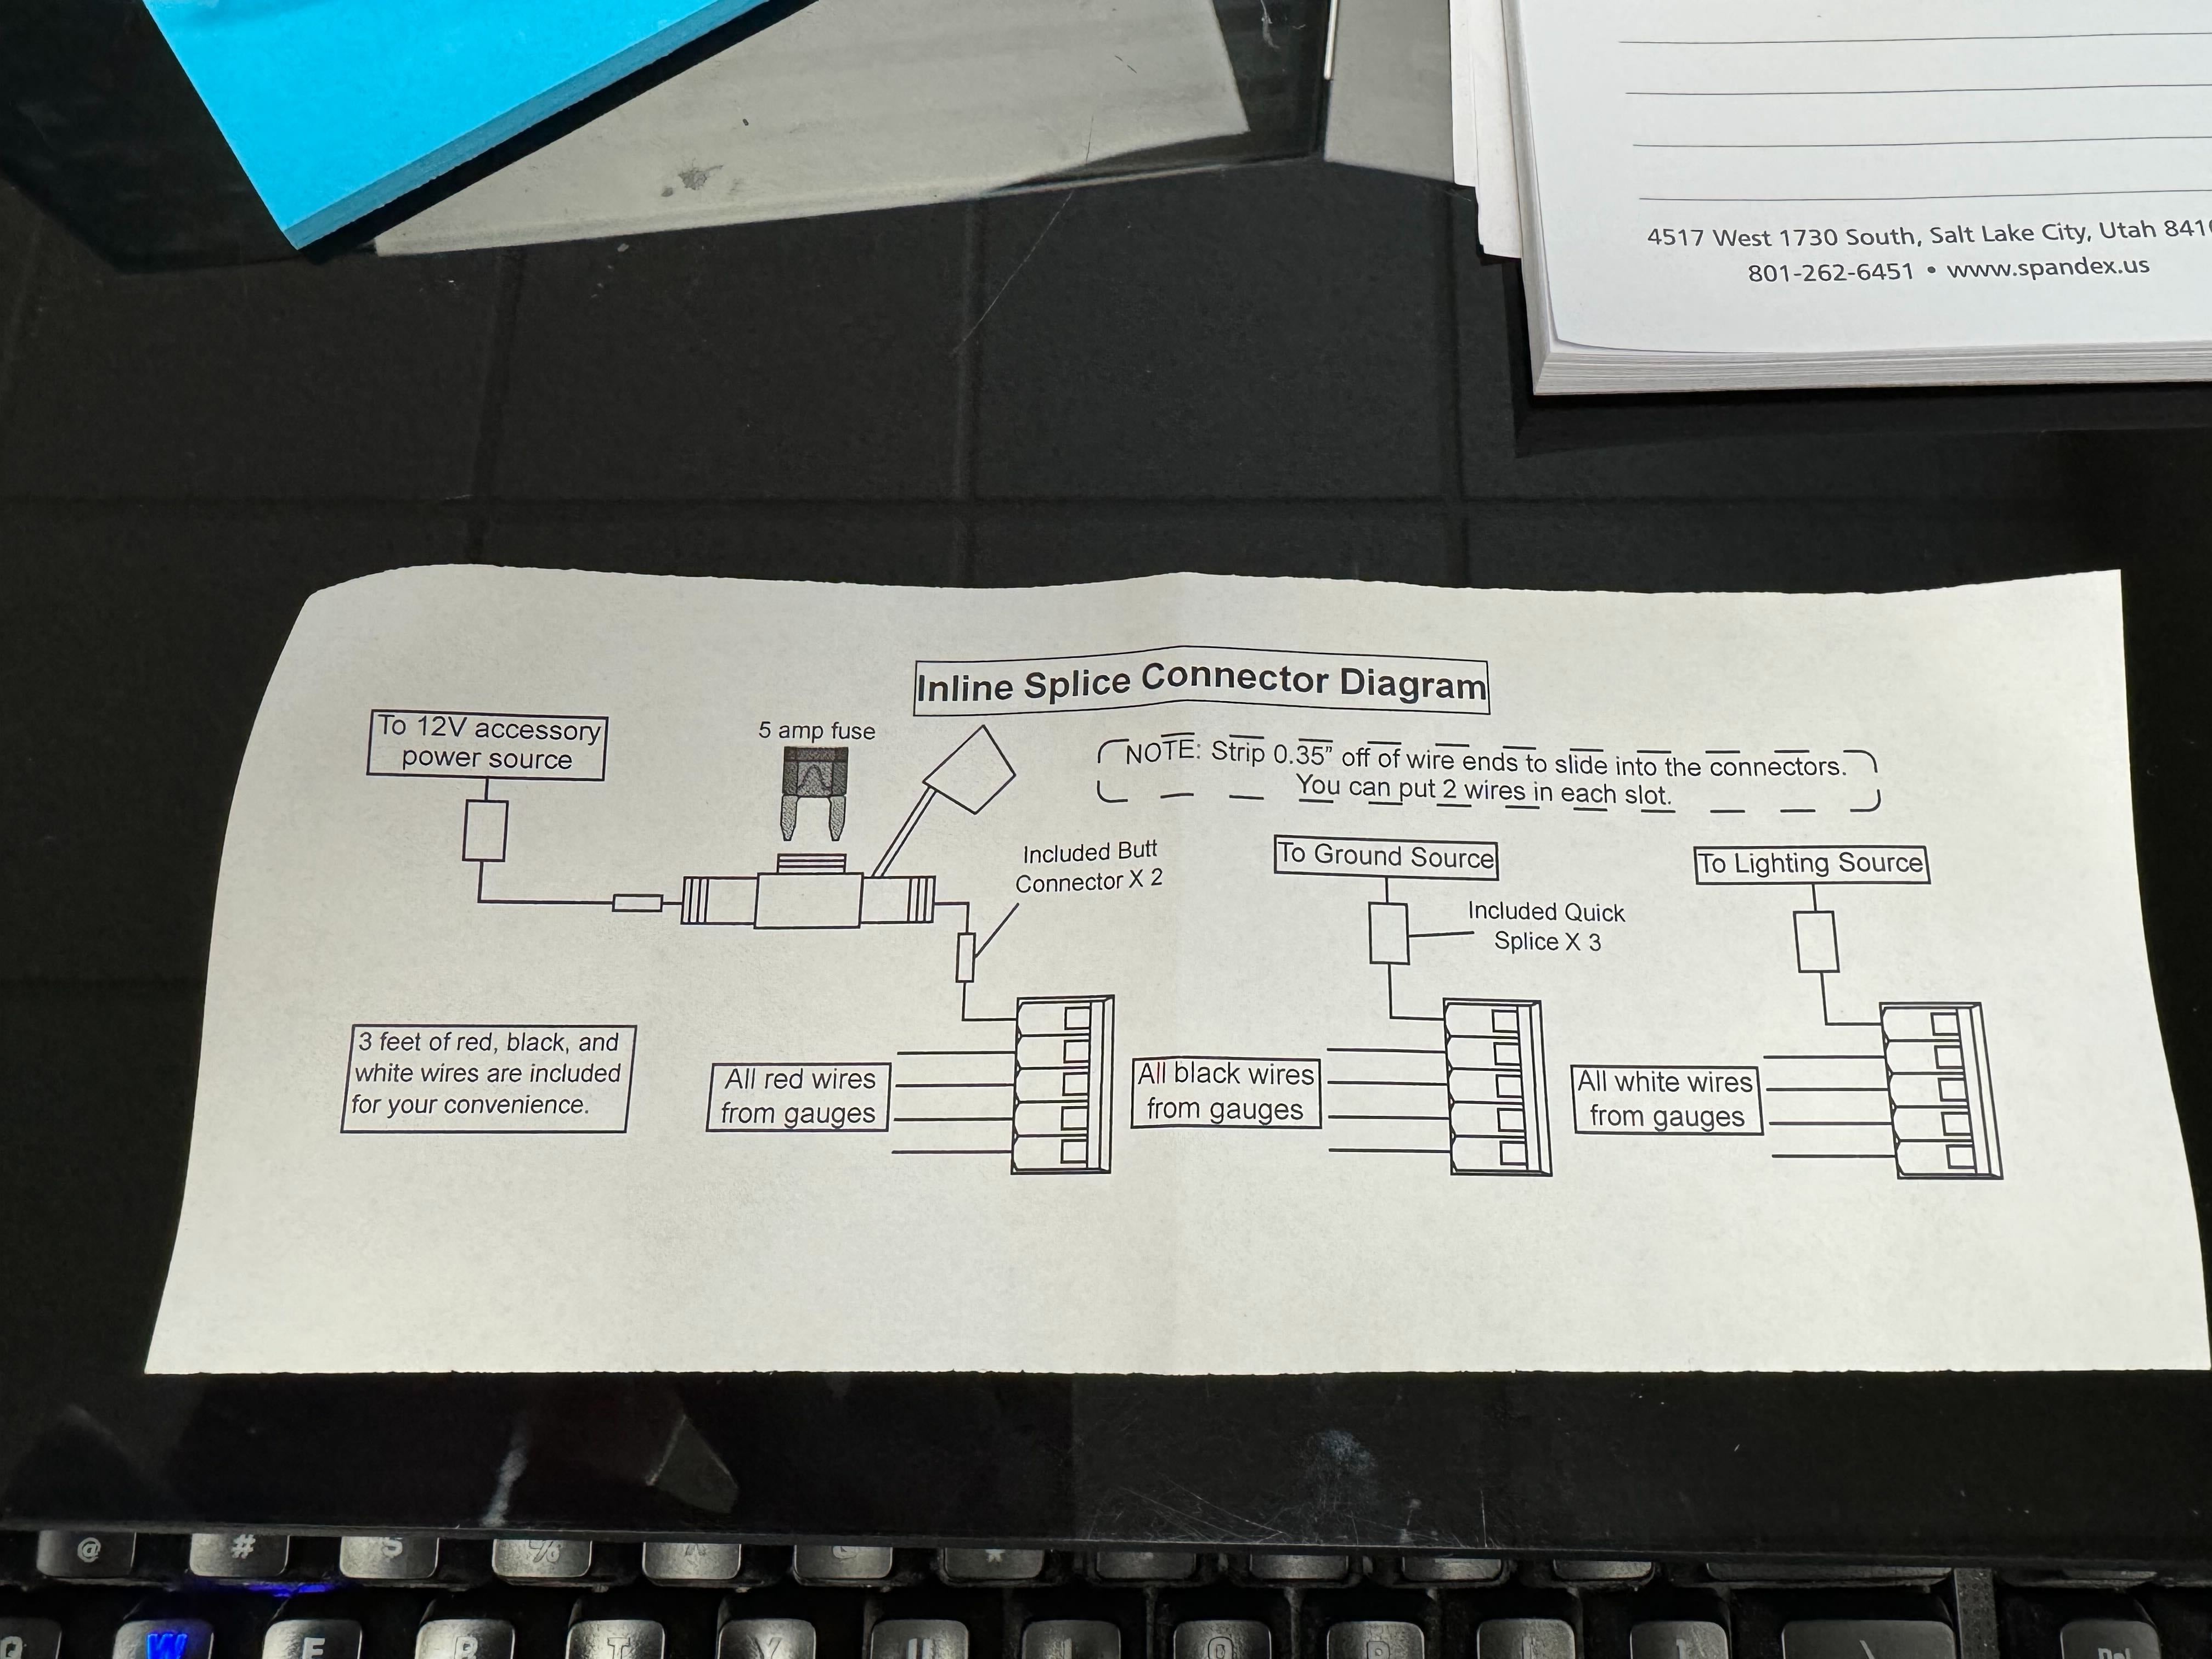 4517 West 1730 South, Salt Lake City, Utah
801-262-6451 • www.spandex.us
Inline Splice Connector Diagram
To 12V accessory
power source
5 amp fuse
NOTE: Strip 0.35” off of wire ends to slide into the connectors.
You can put 2 wires in each slot.
Included Butt
Connector X 2
To Ground Source
Included Quick
Splice X 3
To Lighting Source
3 feet of red, black, and
white wires are included
for your convenience.
All red wires
from gauges
All black wires
from gauges
All white wires
from gauges
@ # $ %
W E R T Y U I O P [ ] \